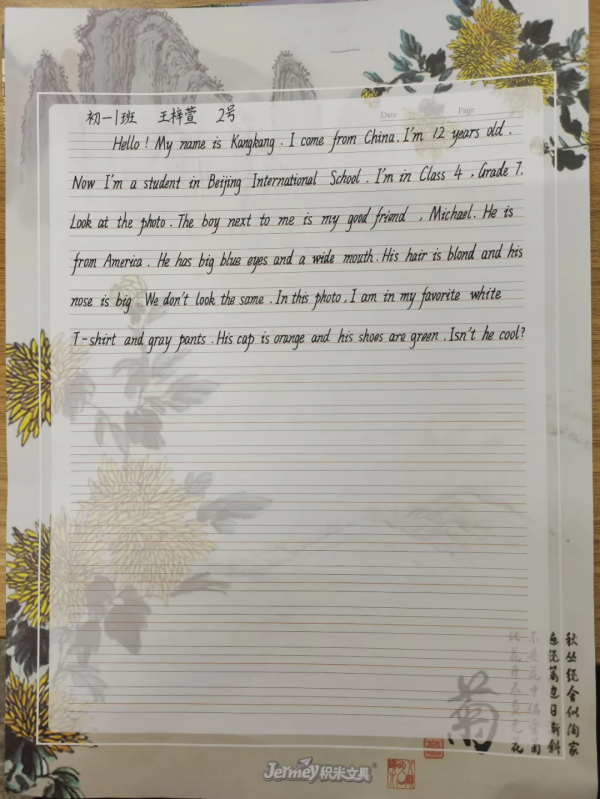 初一1班 王梓萱 2号
Date Page
Hello! My name is Kangkang. I come from China. I'm 12 years old.
Now I'm a student in Beijing International School. I'm in Class 4, Grade 7.
Look at the photo. The boy next to me is my good friend, Michael. He is
from America. He has big blue eyes and a wide mouth. His hair is blond and his
nose is big. We don't look the same. In this photo, I am in my favorite white
T-shirt and gray pants. His cap is orange and his shoes are green. Isn't he cool?
秋丛绕舍似陶家
遍绕篱边日渐斜
菊
Jermey积米文具